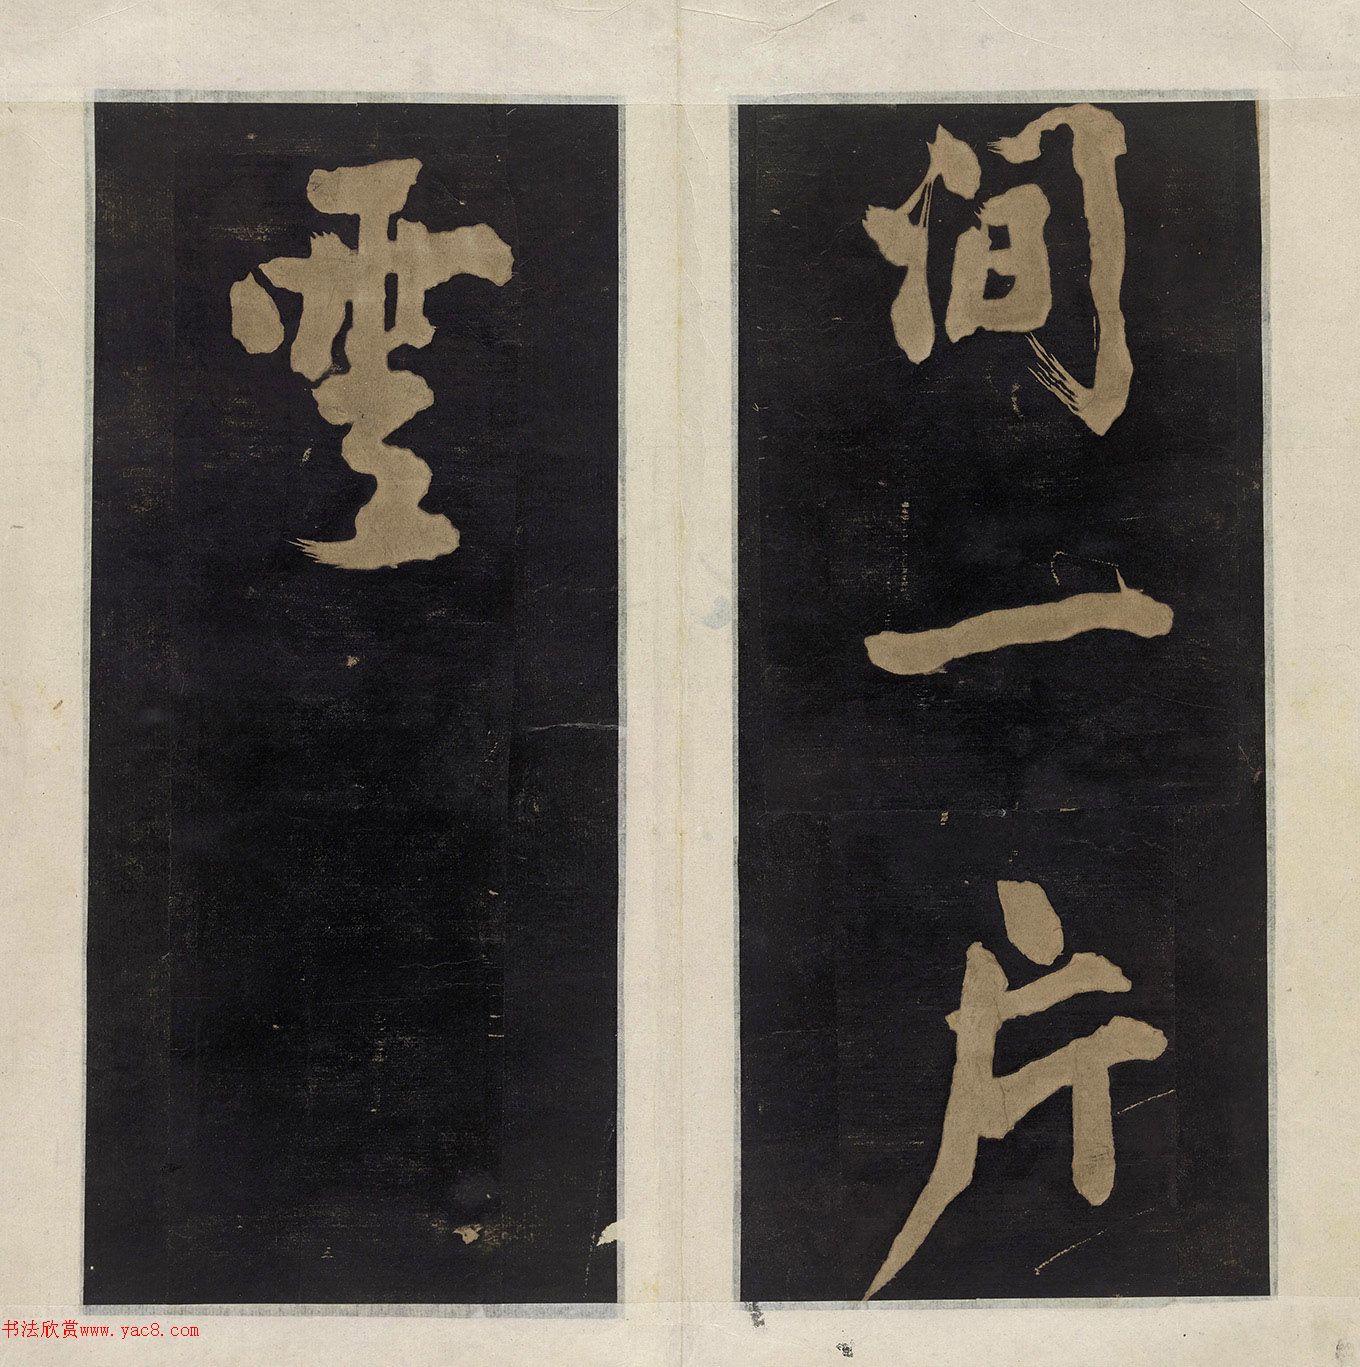 間一片
雲
书法欣赏www.yac8.com